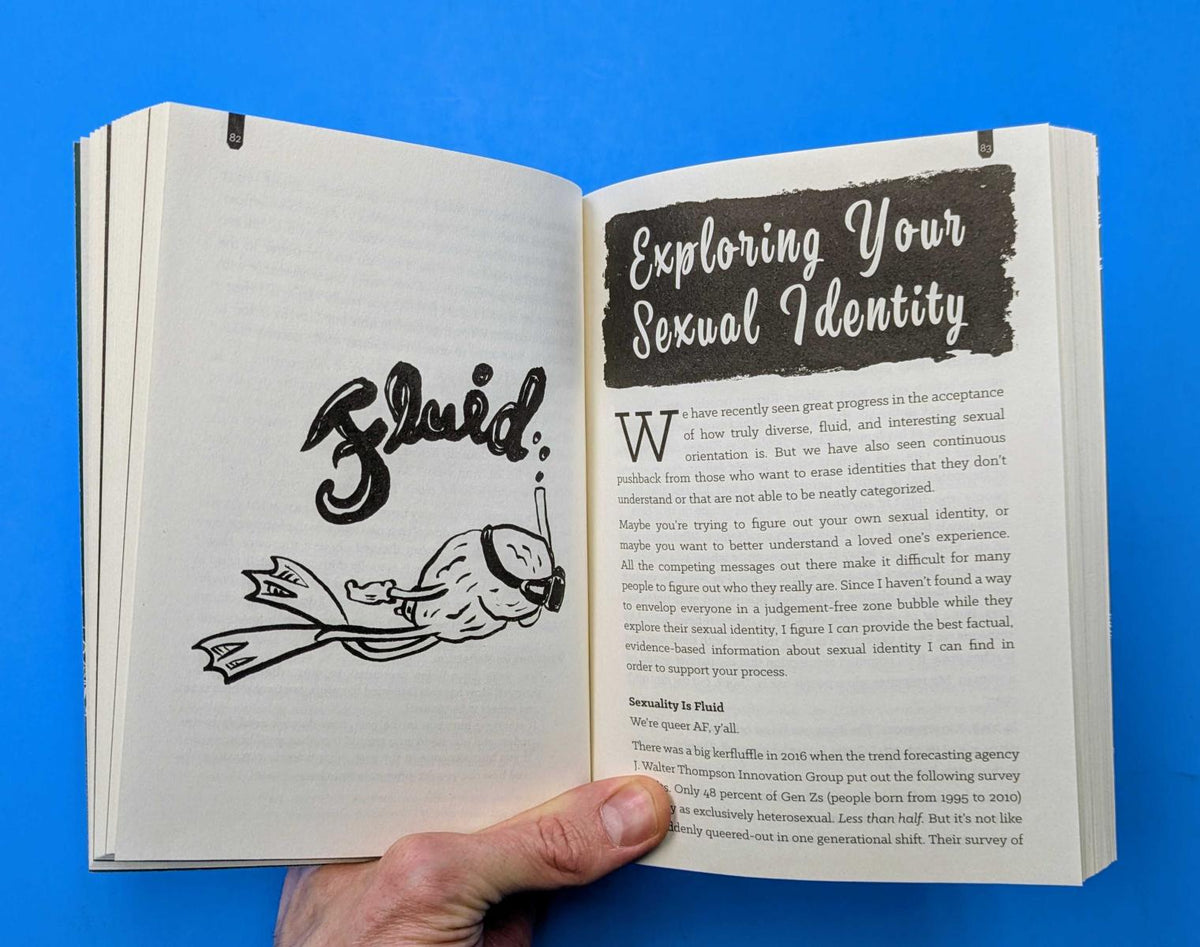 82
Fluid.
83
Exploring Your
Sexual Identity
We have recently seen great progress in the acceptance
of how truly diverse, fluid, and interesting sexual
orientation is. But we have also seen continuous
pushback from those who want to erase identities that they don't
understand or that are not able to be neatly categorized.
Maybe you're trying to figure out your own sexual identity, or
maybe you want to better understand a loved one's experience.
All the competing messages out there make it difficult for many
people to figure out who they really are. Since I haven't found a way
to envelop everyone in a judgement-free zone bubble while they
explore their sexual identity, I figure I can provide the best factual,
evidence-based information about sexual identity I can find in
order to support your process.
Sexuality Is Fluid
We're queer AF, y'all.
There was a big kerfluffle in 2016 when the trend forecasting agency
J. Walter Thompson Innovation Group put out the following survey
Only 48 percent of Gen Zs (people born from 1995 to 2010)
as exclusively heterosexual. Less than half. But it's not like
queered-out in one generational shift. Their survey of